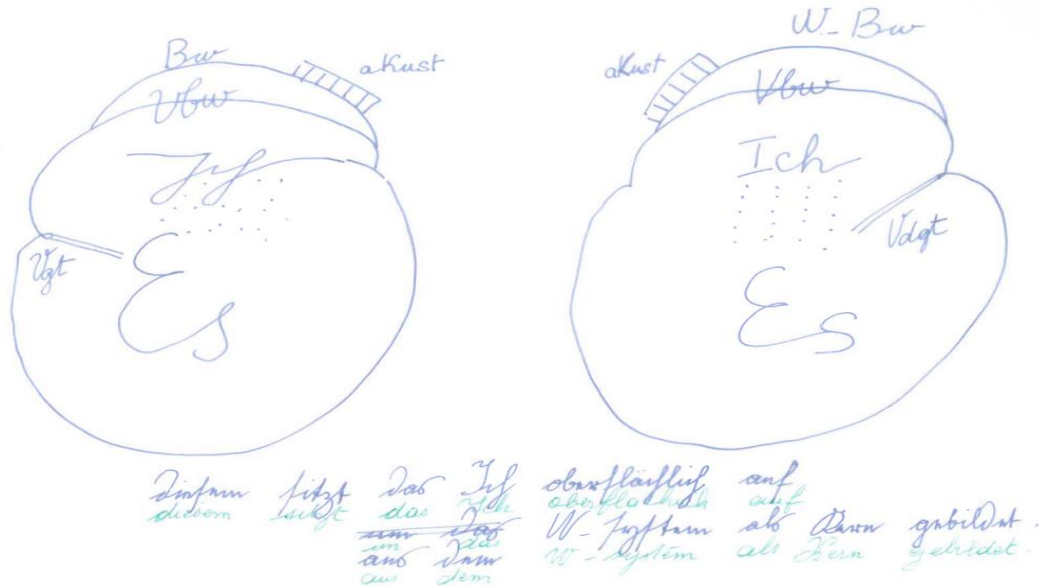 Bw
akust
Vbw
Ich
Vgt
Es
W-Bw
akust
Vbw
Ich
Vdgt
Es
diesem sitzt das Ich oberflächlich auf
diesem sitzt das Ich oberflächlich auf
um das W-System als Kern gebildet.
un das W-System als Kern gebildet.
aus dem
aus dem